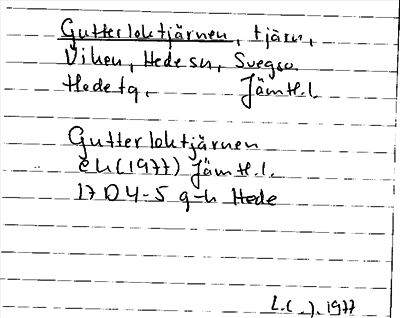 Gutterloktjärnen, tjärn,
Viken, Hede sn, Svegs
Hede tg. Jämtl.l
Gutterloktjärnen
ek (1977) Jämtl.l.
17D 4-5 g-h Hede
L.( ). 1977